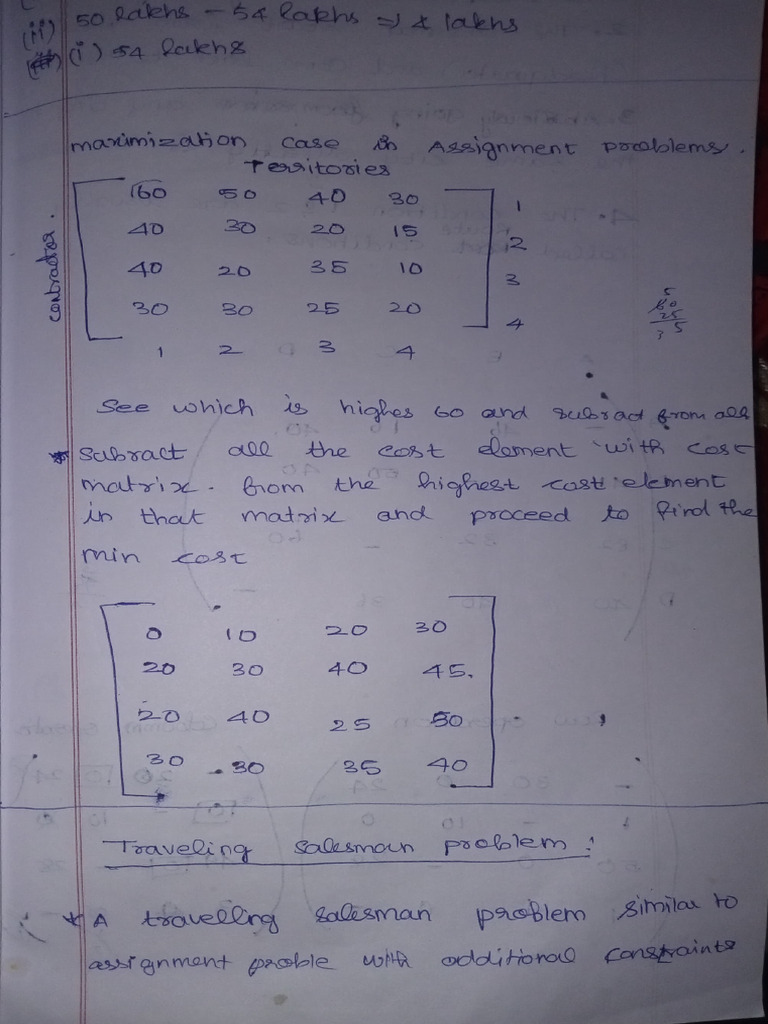 (ii) 50 lakhs - 54 lakhs => 4 lakhs
(i) 54 lakhs
maximization case in Assignment problems.
Territories
contractor.
60 50 40 30 1
40 30 20 15 2
40 20 35 10 3
30 30 25 20 4
1 2 3 4
5
60
25
35
See which is highes 60 and subract from all
* subract all the cost element with cost
matrix. from the highest cost element
in that matrix and proceed to find the
min cost
0 10 20 30
20 30 40 45.
20 40 25 50
30 30 35 40
Traveling salesman problem :
* A travelling salesman problem similar to
assignment proble with additional constraints